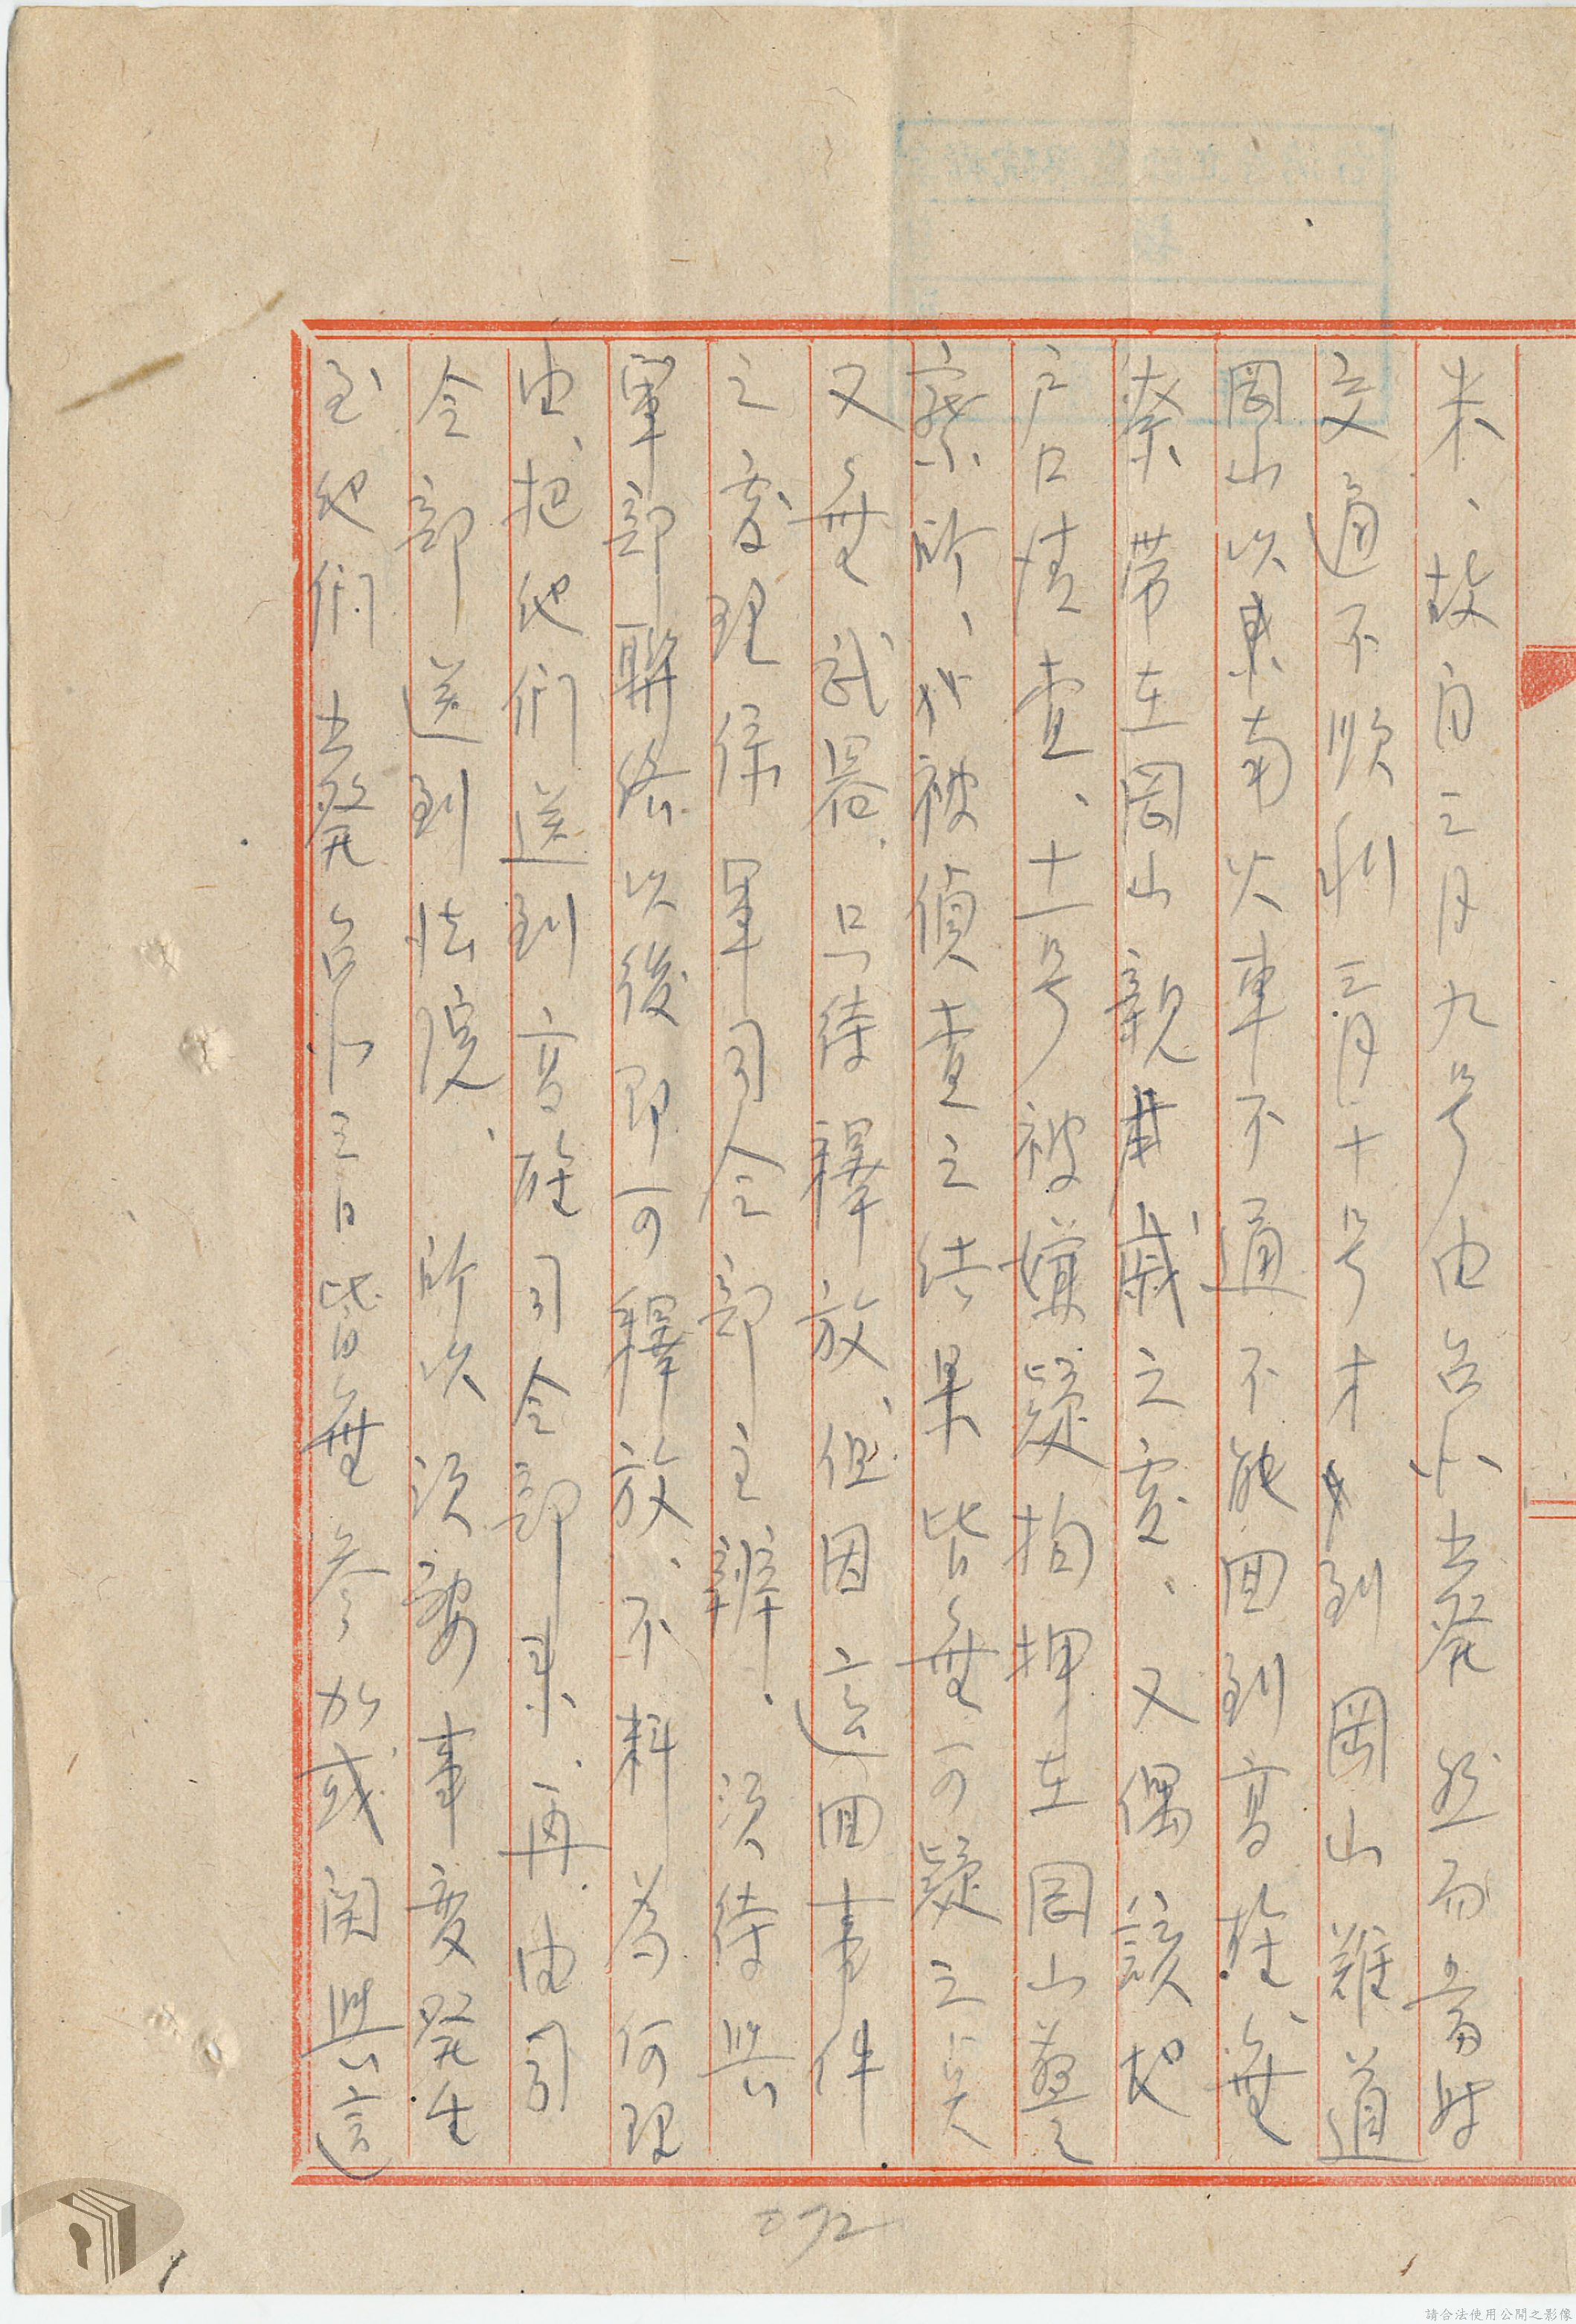 米、故自三月九号由台北出発然而当时
交通不順利三月十号才到岡山難道
岡山以東南火車不通不能回到高雄無
奈帯在岡山親戚之處、又偶該地
戶口清查、十一号被嫌疑拘押在岡山警
察所、於被偵查之結果皆無可疑之点
又無武器、只待釋放、但因這回事件
之處理係軍司令部主辦、須待與
軍部聯絡以後即可釋放、不料為何理
由、把他們送到高雄司令部来、再由司
令部送到法院、所以須要事変発生
至他們出発台北三日皆無参加或関與這
072
請合法使用公開之影像